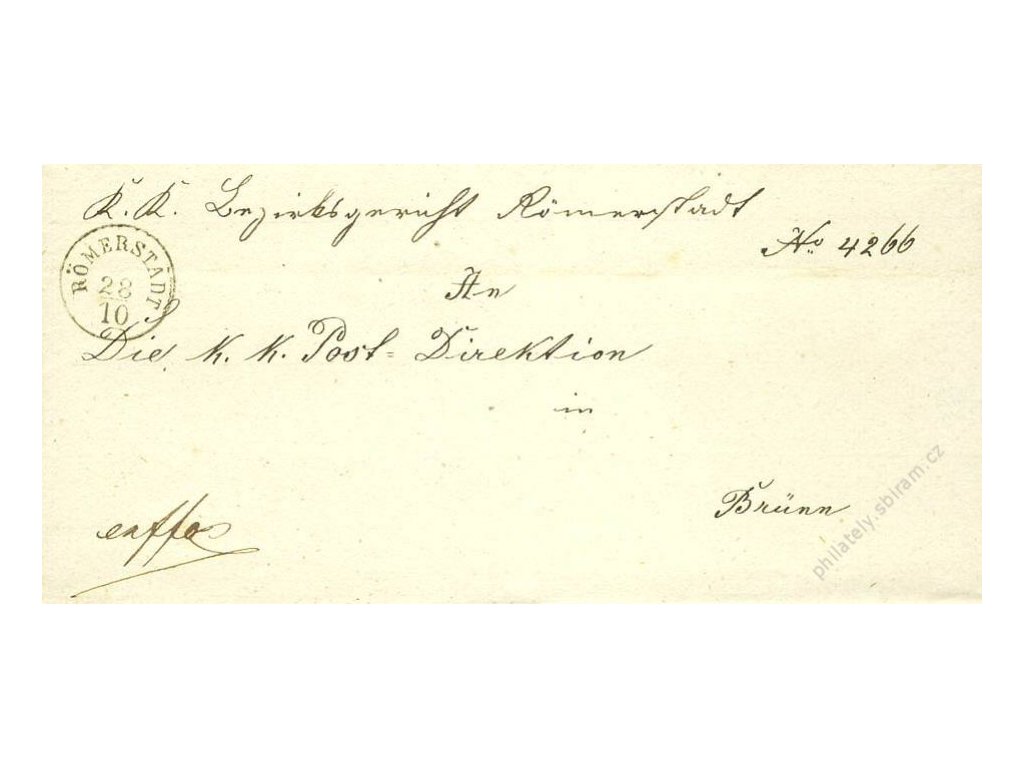 K. K. Bezirksgericht Römerstadt
No 4266
RÖMERSTADT
28
10
An
Die k. k. Post= Direktion
in
Brünn
philately.sbiram.cz